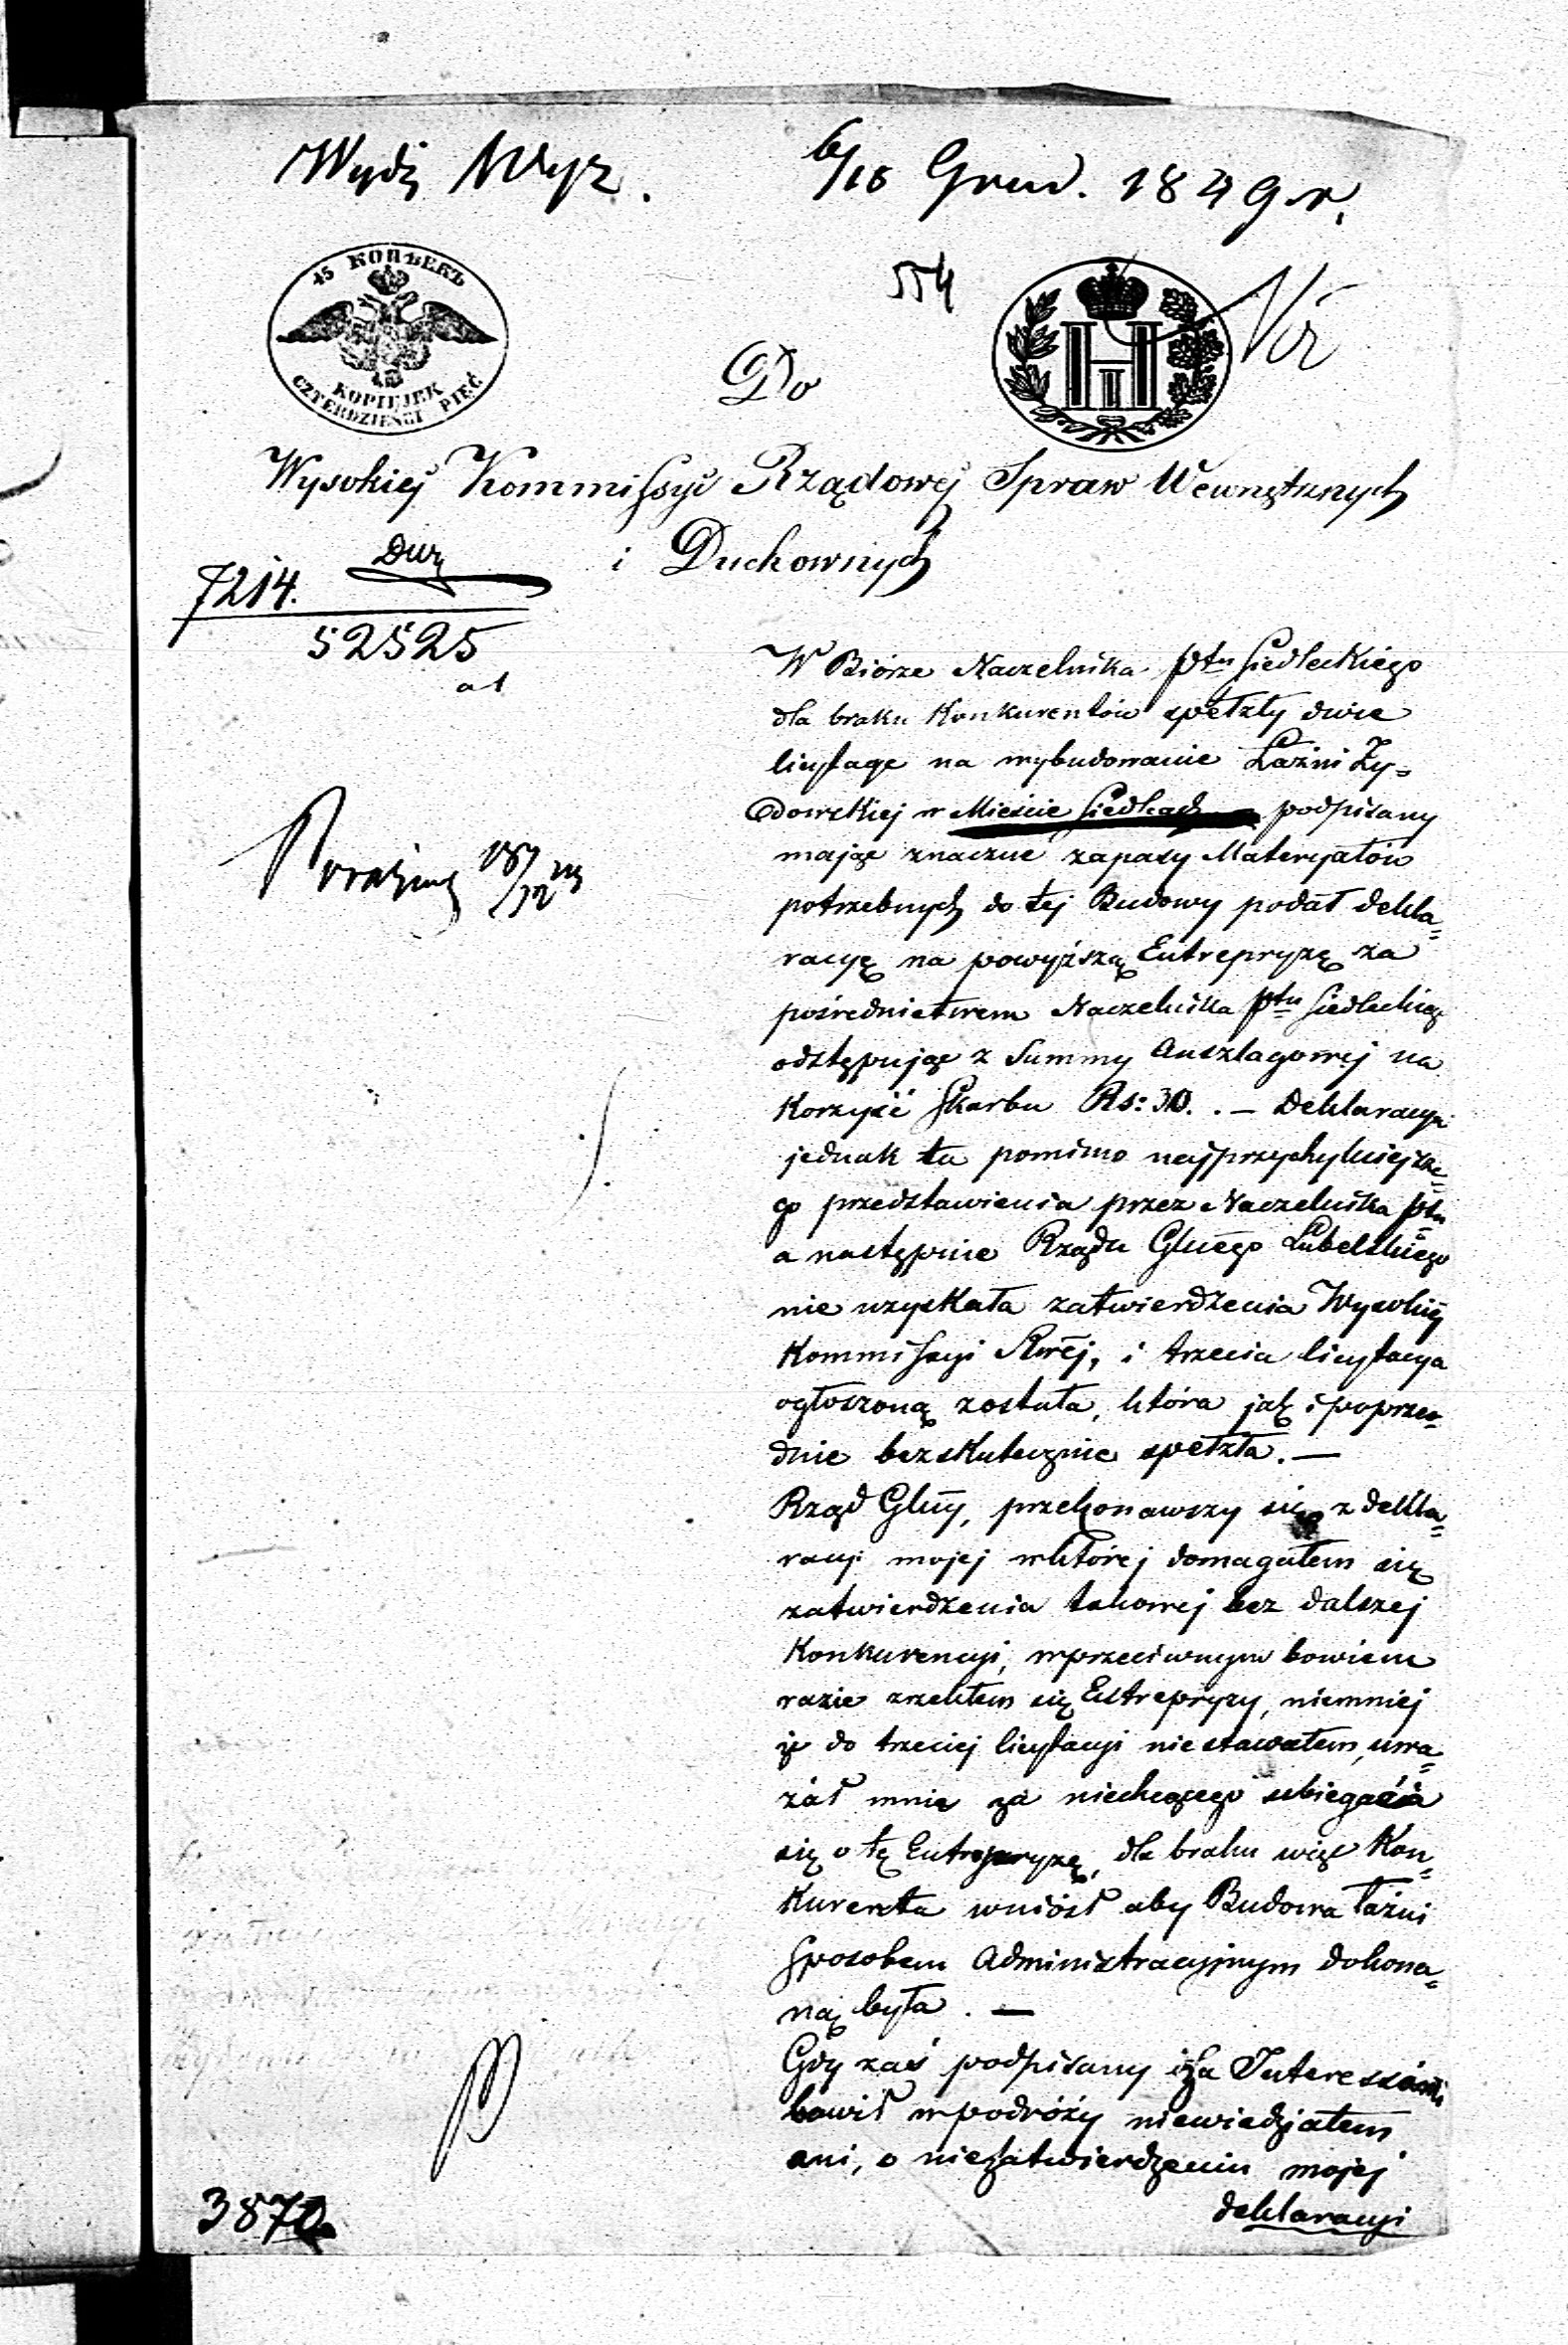 Wydz Wyz.
6/18 Grud. 1849 r.
45 КОПѢЕКЪ
KOPIEJEK
CZTERDZIEŚCI PIĘĆ
554
Do
Wysokiej Kommissyi Rządowej Spraw Wewnętrznych
i Duchownych
7214.
52525
W Biórze Naczelnika Ptu Siedleckiego
dla braku Konkurentów spełzły dwie
licytacye na wybudowanie Łaźni Ży=
dowskiej w Mieście Siedlcach podpisany
mając znaczne zapasy Materyałów
potrzebnych do tej Budowy podał dekla=
racyę na powyższą Entrepryzę za
pośrednictwem Naczelnika Ptu Siedleckiego
odstępując z Summy Anszlagowej na
Korzyść Skarbu Rs: 30. . — Deklaracya
jednak ta pomimo najprzychylniejsze=
go przedstawienia przez Naczelnika Ptu
a następnie Rządu Glnego Lubelskiego
nie uzyskała zatwierdzenia Wysokiej
Kommissyi Rwej, i trzecia licytacya
ogłoszoną została, która jak i poprze=
dnie bezskutecznie spełzła. —
Rząd Glny, przekonawszy się z dekla=
racyi mojej w której domagałem się
zatwierdzenia takowej bez dalszej
Konkurencyi, w przeciwnym bowiem
razie zrzekłem się Entrepryzy, niemniej
że do trzeciej licytacyi nie stawałem, uwa=
żał mnie za niechcącego ubiegania
się o tę Entrepryzę, dla braku więc Kon=
kurenta wniósł aby Budowa łaźni
sposobem Administracyjnym dokona=
ną była. —
Gdy zaś podpisany za Interessami
bawił w podróży niewiedziałem
ani, o niezatwierdzeniu mojej
deklaracyi
3870